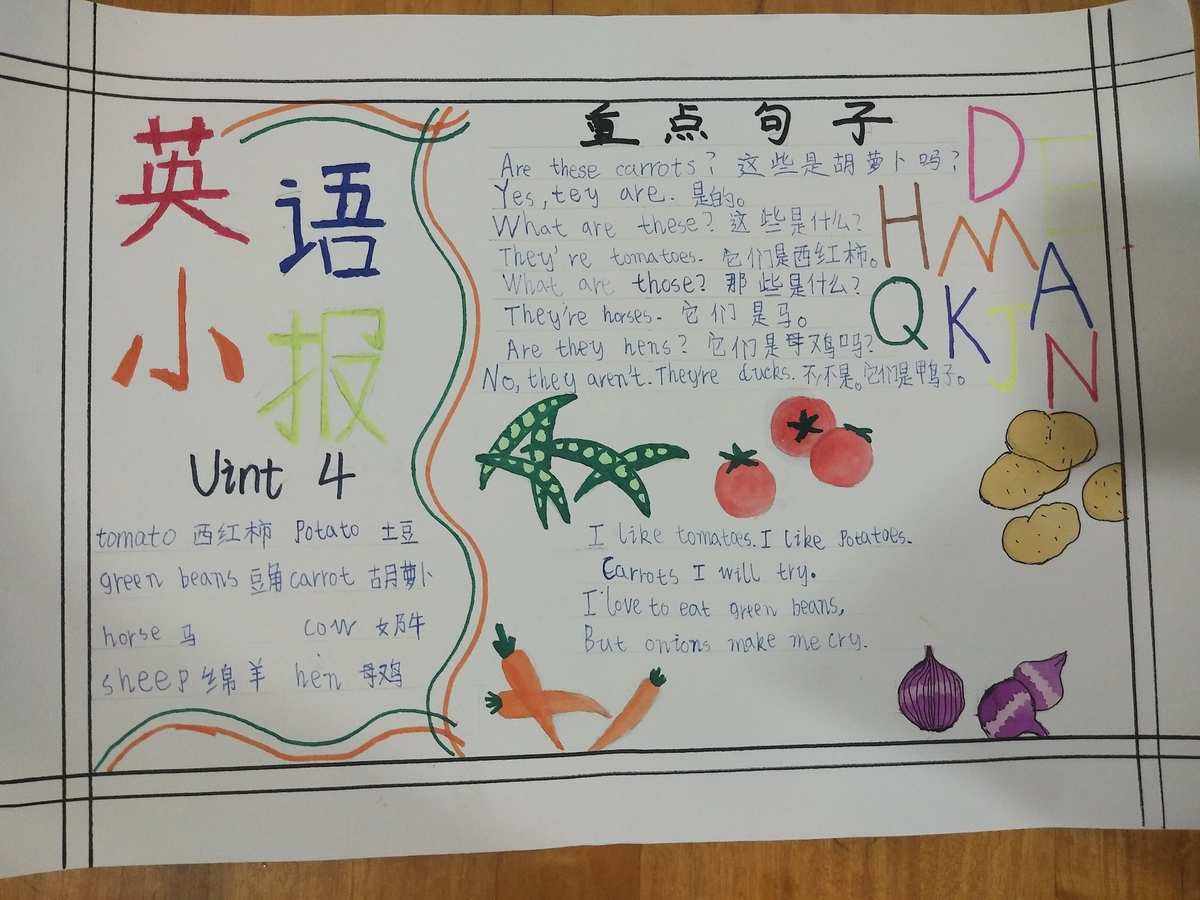 英语
小报
Uint 4
tomato 西红柿 Potato 土豆
green beans 豆角 carrot 胡萝卜
horse 马 cow 奶牛
sheep 绵羊 hen 母鸡
重点句子
Are these carrots? 这些是胡萝卜吗?
Yes, tey are. 是的。
What are these? 这些是什么?
They're tomatoes. 它们是西红柿。
What are those? 那些是什么?
They're horses. 它们是马。
Are they hens? 它们是母鸡吗?
No, they aren't. They're ducks. 不,不是。它们是鸭子。
D E
H M A
Q K J N
I like tomatoes. I like Potatoes.
Carrots I will try.
I love to eat green beans,
But onions make me cry.